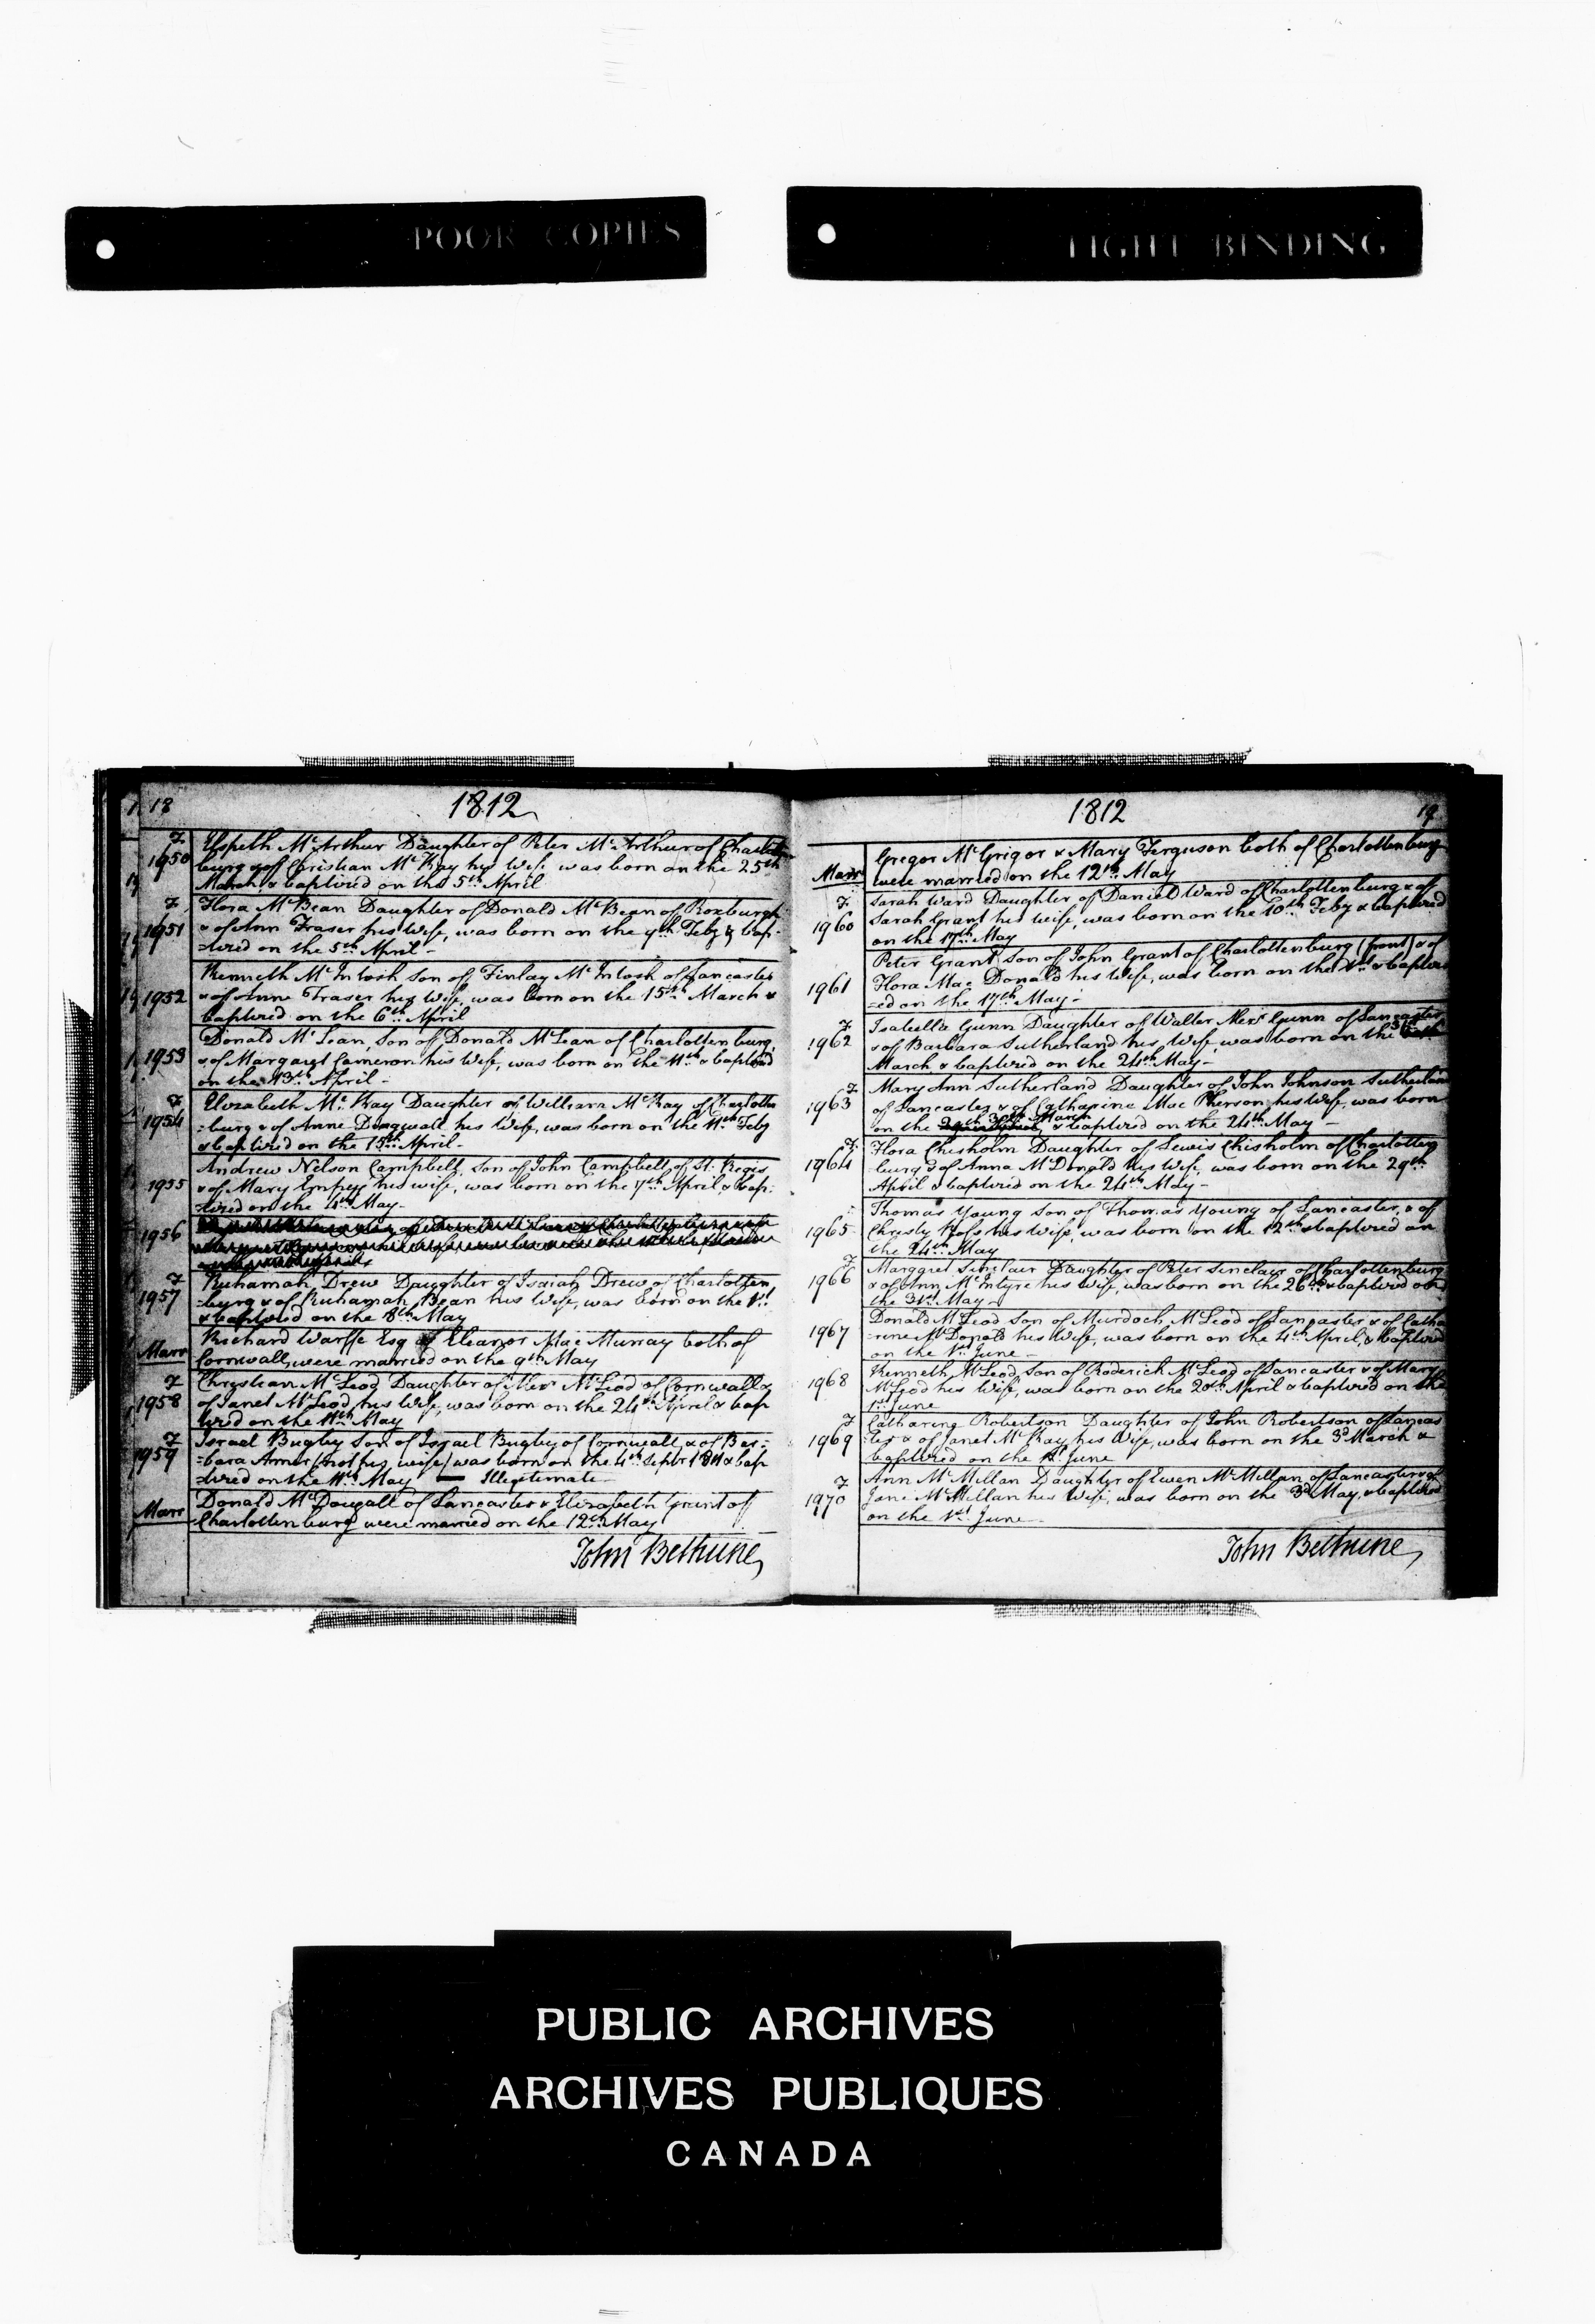 POOR COPIES
TIGHT BINDING
18
1812
F
1950
Elspeth Mc Arthur Daughter of Peter Mc Arthur of Charlotten
burg & of Christian Mc Kay his Wife was born on the 25th
March & baptized on the 5th April
F
1951
Flora Mc Bean Daughter of Donald Mc Bean of Roxburgh
& of Ann Fraser his Wife, was born on the 9th Feby & bap-
=tized on the 5th April -
1952
Kenneth Mc Intosh Son of Finlay Mc Intosh of Lancaster
& of Anne Fraser his Wife, was born on the 15th March &
baptized on the 6th April
1953
Donald Mc Lean, Son of Donald Mc Lean of Charlottenburg,
& of Margaret Cameron his Wife, was born on the 11th & baptized
on the 13th April -
F
1954
Elizabeth Mc Kay Daughter of William Mc Kay of Charlotten
=burg & of Anne Dingwall his Wife, was born on the 11th Feby
& baptized on the 13th April -
1955
Andrew Nelson Campbell, Son of John Campbell of St. Regis
& of Mary Empey his wife, was born on the 7th April & bap:
=tized on the 4th May -
1956
F
1957
Ruhamah Drew Daughter of Isaiah Drew of Charlotten
=burg & of Ruhamah Bean his Wife, was born on the 1st
& baptized on the 8th May
Marr
Richard Warffe Esq & Eleanor Mac Murray both of
Cornwall, were married on the 9th May
F
1958
Christian Mc Leod Daughter of Alexr Mc Leod of Cornwall &
of Janet Mc Leod his Wife, was born on the 24th April & bap
tized on the 11th May
F
1959
Israel Bugby Son of Israel Bugby of Cornwall, & of Bar=
=bara (not his wife) was born on the 4th Septbr 1811 & bap
=tized on the 11th May — Illegitimate -
Marr
Donald Mc Dougall of Lancaster & Elizabeth Grant of
Charlottenburg were married on the 12th May
John Bethune,
1812
19
Marr
Gregor Mc Grigor & Mary Ferguson both of Charlottenburg
were married on the 12th May
F
1960
Sarah Ward Daughter of Daniel Ward of Charlottenburg & of
Sarah Grant his wife, was born on the 10th Feby & baptized
on the 17th May
1961
Peter Grant, Son of John Grant of Charlottenburg (front) & of
Flora Mac Donald his Wife, was born on the 1st & baptiz
=ed on the 17th May -
F
1962
Isabella Gunn Daughter of Walter Alexr Gunn of Lancaster
& of Barbara Sutherland his Wife, was born on the
March & baptized on the 24th May -
F
1963
Mary Ann Sutherland Daughter of John Johnson Sutherland
of Lancaster & of Catharine Mac Pherson his Wife, was born
on the 30th March & baptized on the 24th May -
F
1964
Flora Chisholm Daughter of Lewis Chisholm of Charlotten
-burg & of Anna Mc Donald his Wife, was born on the 29th
April & baptized on the 24th May -
1965
Thomas Young Son of Thomas Young of Lancaster, & of
Christy Ross his Wife, was born on the 12th & baptized on
the 24th May
F
1966
Margaret Sinclair Daughter of Peter Sinclair of Charlottenburg
& of Ann Mc Intyre his Wife, was born on the 26th & baptized on
the 31st May -
1967
Donald Mc Leod Son of Murdoch Mc Leod of Lancaster & of Catha
-rine Mc Donald his Wife, was born on the 4th April, & baptized
on the 1st June -
1968
Kenneth Mc Leod Son of Roderich Mc Leod of Lancaster & of Mary
Mc Leod his Wife, was born on the 20th April & baptized on the
1st June
F
1969
Catharine Robertson Daughter of John Robertson of Lancas
-ter & of Janet Mc Kay his Wife, was born on the 3d March &
baptized on the 1st June
F
1970
Ann Mc Millan Daughter of Ewen Mc Millan of Lancaster & of
Jane Mc Millan his Wife, was born on the 3d May, & baptized
on the 1st June -
John Bethune,
PUBLIC ARCHIVES
ARCHIVES PUBLIQUES
CANADA